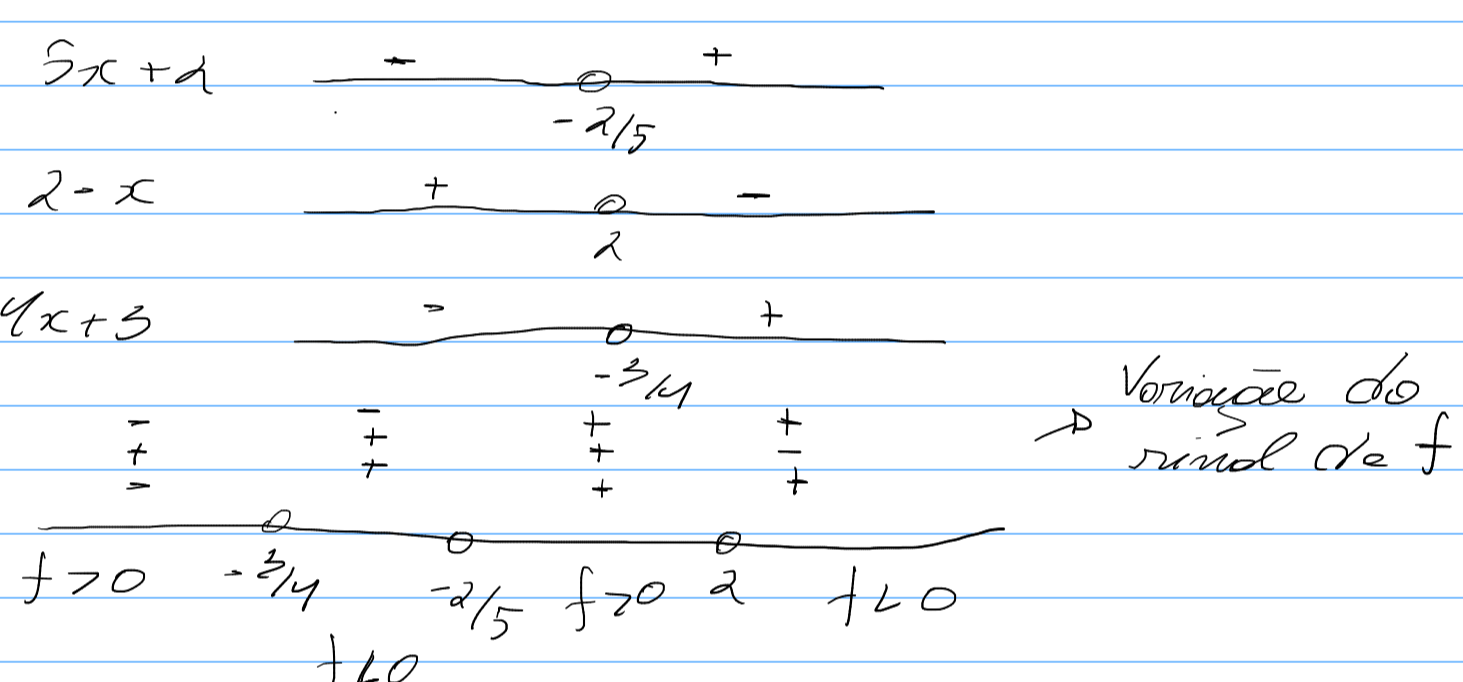 5x + 2 - +
-2/5
2 - x + -
2
4x + 3 - +
-3/4
- - + +
+ + + -
- + + +
Variação do
sinal de f
f > 0 -3/4 -2/5 f > 0 2 f < 0
f < 0